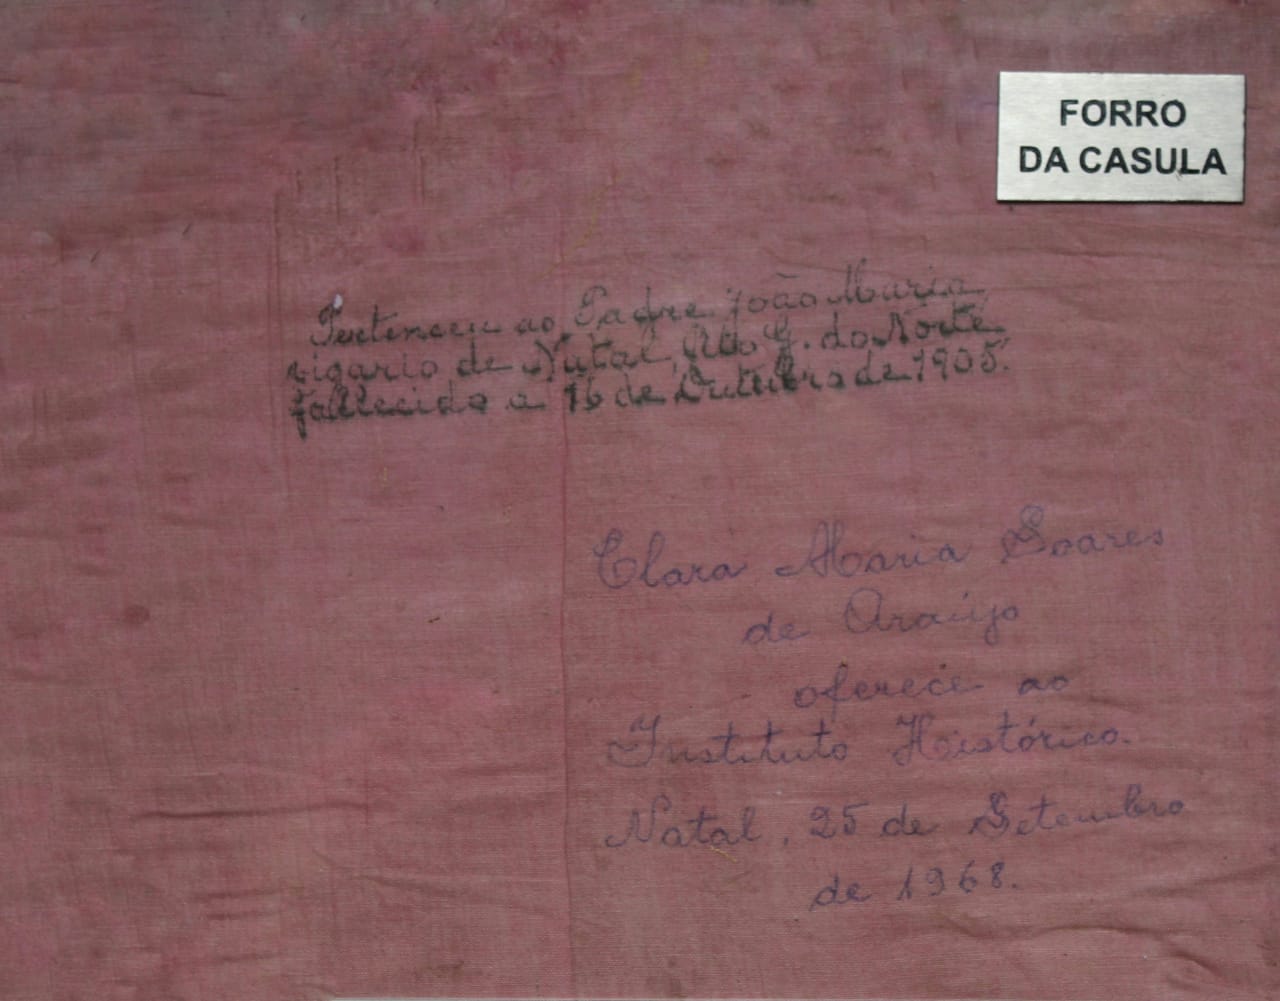 FORRO
DA CASULA
Pertenceu ao Padre João Maria
vigario de Natal, Rio G. do Norte
fallecido a 16 de Outubro de 1905.
Clara Maria Soares
de Araújo
oferece ao
Instituto Histórico.
Natal, 25 de Setembro
de 1968.